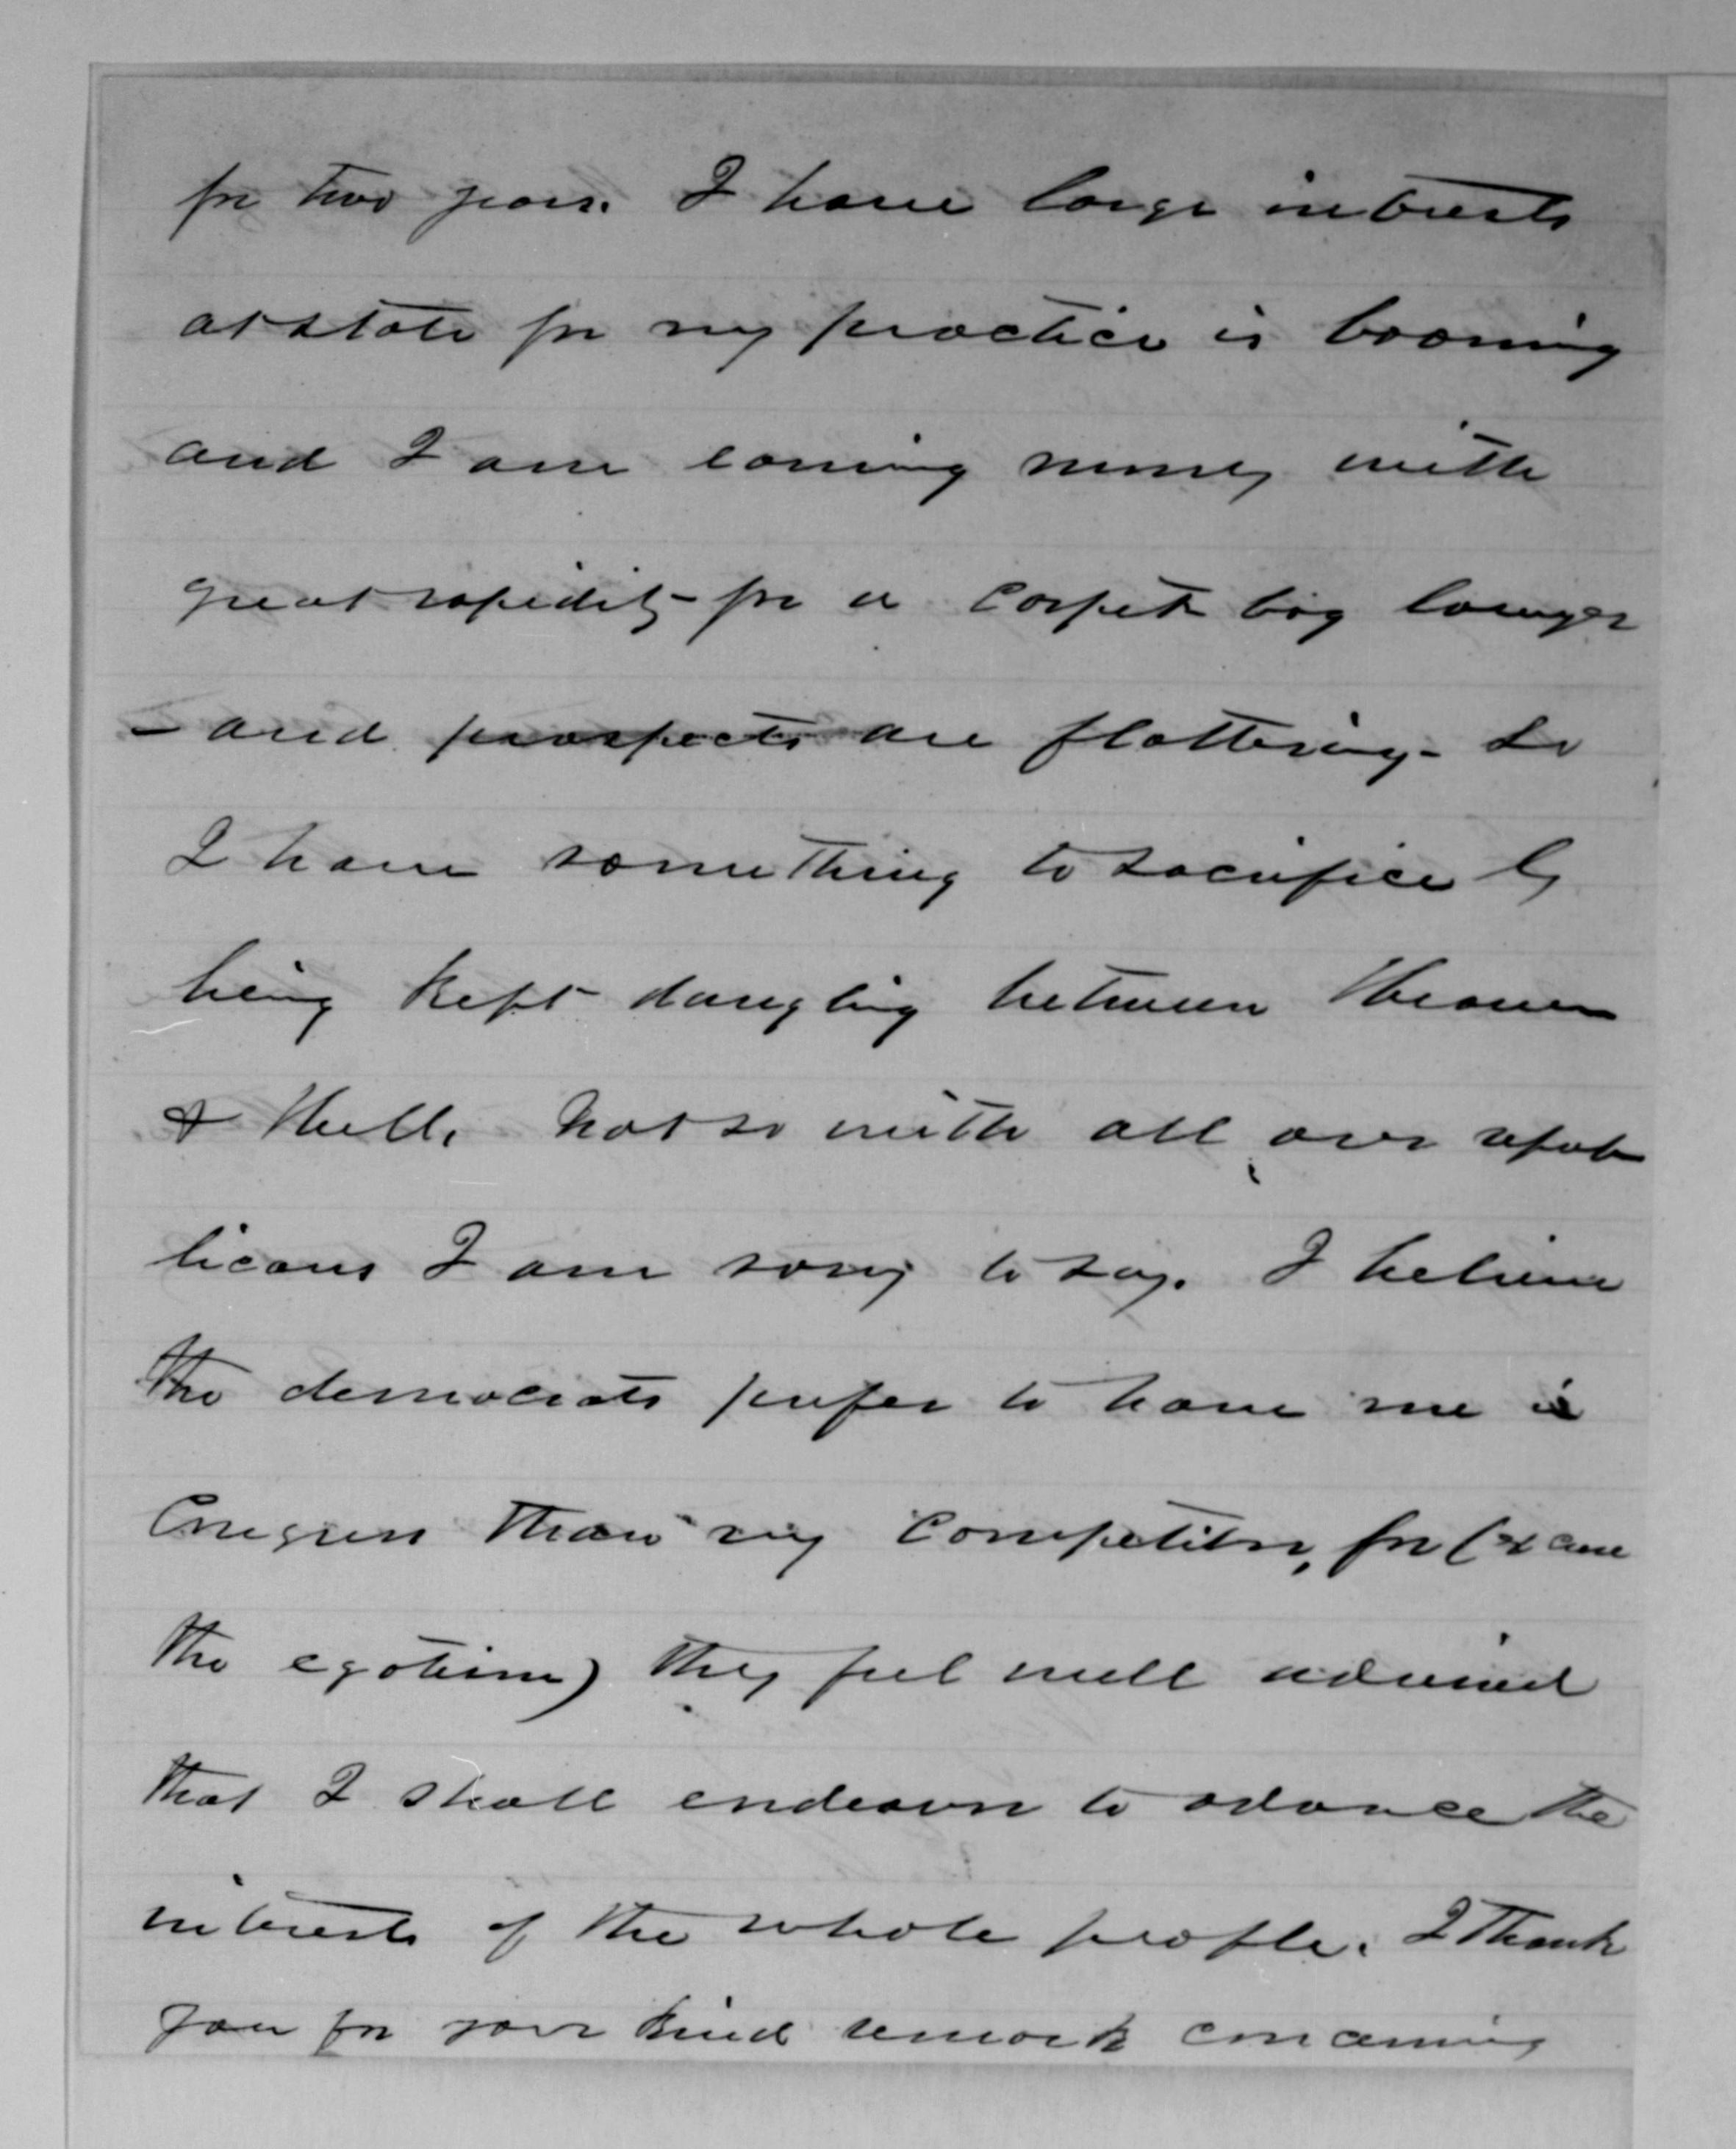 for two years. I have large interests
at stake for my practice is booming
and I am coining money with
great rapidity - for a carpet bag lawyer
- and prospects are flattering - So
I have something to sacrifice by
being kept dangling between Heaven
& Hell. Not so with all our repub
licans I am sorry to say. I believe
the democrats prefer to have me in
Congress than my competitor, for (excuse
the egotism) they feel well advised
that I shall endeavor to advance the
interests of the whole people. I thank
you for your kind remark concerning